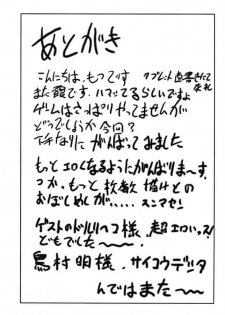 あとがき
こんにちは、もつです タブレット直書きにて失礼
また霞です。ハマってるらしいですよ
ゲームはさっぱりやってませんが
どうでしょうか今回?
下手なりに がんばってみました
もっとエロくなるようにがんばりま～す
つか、もっと枚数描けとの
おぼしめしが..... スンマセン
ゲストのドリルヘコ様、超エロいっス!
どもでした～～。
鳥村明様、サイコウデシタ
んではまた～～